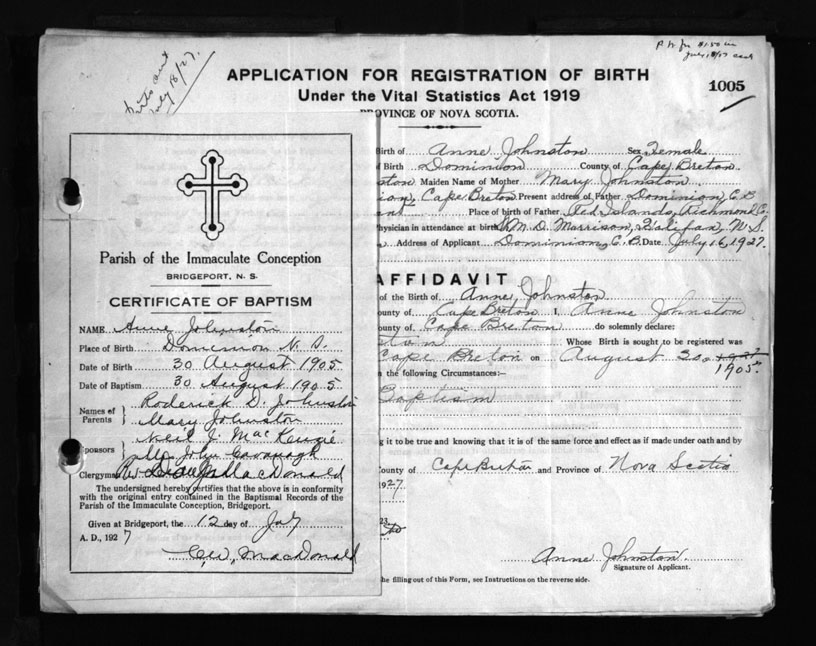 July 18/27.
July 18/27
APPLICATION FOR REGISTRATION OF BIRTH
1005
Under the Vital Statistics Act 1919
PROVINCE OF NOVA SCOTIA.
Birth of Anne Johnston Sex Female
Birth Dominion County of Cape Breton
ston Maiden Name of Mother Mary Johnston
ion, Cape Breton Present address of Father Dominion, C.B
Place of birth of Father Red Islands, Richmond Co.
Physician in attendance at birth M. D. Morrison, Halifax, N.S.
Address of Applicant Dominion, C.B. Date July 16, 1927.
AFFIDAVIT
of the Birth of Anne Johnston
ounty of Cape Breton I, Anne Johnston
ounty of Cape Breton do solemnly declare:
ston Whose Birth is sought to be registered was
Cape Breton on August 30, 1927
1905.
n the following Circumstances:—
Baptism
g it to be true and knowing that it is of the same force and effect as if made under oath and by
County of Cape Breton and Province of Nova Scotia
1927
23.
Anne Johnston
Signature of Applicant.
he filling out of this Form, see Instructions on the reverse side.
Parish of the Immaculate Conception
BRIDGEPORT, N. S.
CERTIFICATE OF BAPTISM
NAME Anne Johnston
Place of Birth Dominion N. S.
Date of Birth 30 August 1905
Date of Baptism 30 August 1905
Names of Parents } Roderick D. Johnston
Mary Johnston
Sponsors } Neil J. MacKenzie
Mrs John Cavanagh
Clergyman MacDonald
The undersigned hereby certifies that the above is in conformity
with the original entry contained in the Baptismal Records of the
Parish of the Immaculate Conception, Bridgeport.
Given at Bridgeport, the 12 day of July
A. D., 1927
C.W. MacDonald